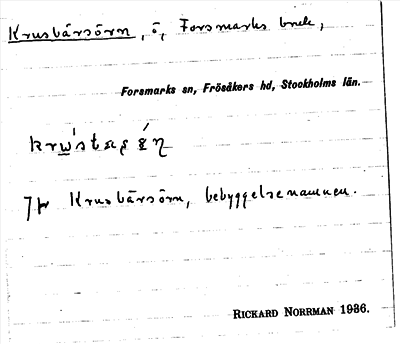 Krusbärsörn, ö, Forsmarks bruk,
Forsmarks sn, Frösåkers hd, Stockholms län.
Jfr Krusbärsörn, bebyggelsenamnen.
RICKARD NORRMAN 1936.